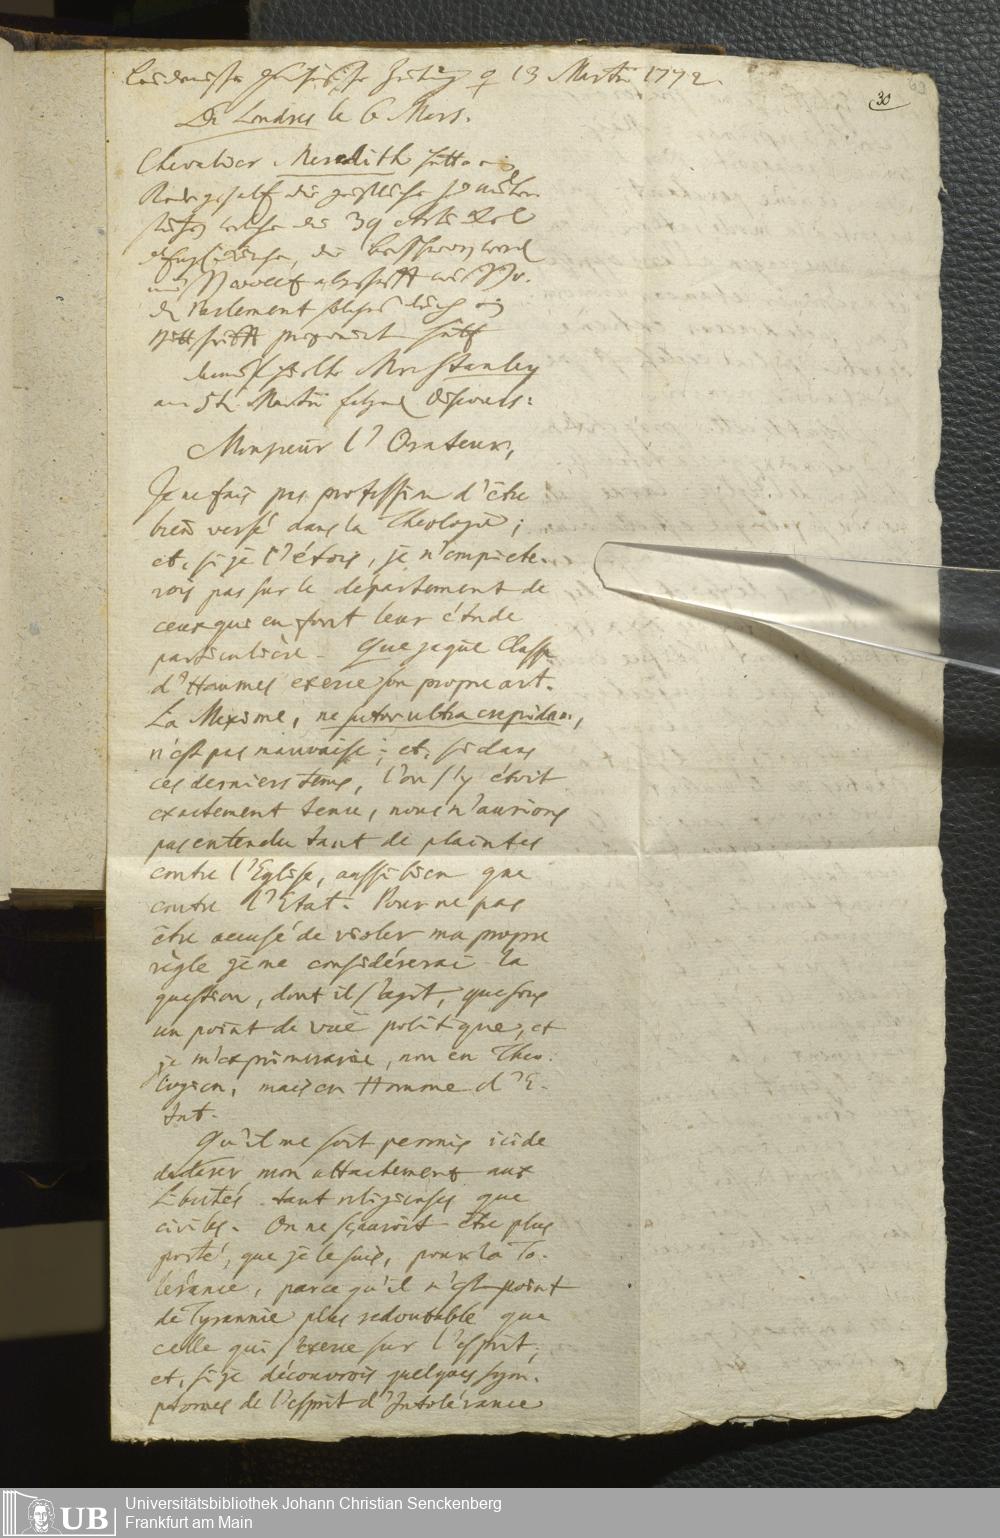 30
13 Martii 1772.
De Londres le 6 Mars.
Chevalier Meredith hatte
welche die 39 Articul
Parlement
proponirt
Mr Stanley
am 5t. Martii discours:
Monsieur l'Orateur,
Je ne fais pas profession d'être
bien versé dans la Theologie;
et, si je l'étois, je n'empiete-
rois pas sur le département de
ceux qui en font leur étude
particulière. Que chaque Classe
d'Hommes exerce son propre art.
La Maxime, ne sutor ultra crepidam,
n'est pas mauvaise; et, si dans
ces derniers tems, l'on s'y étoit
exactement tenu, nous n'aurions
pas entendu tant de plaintes
contre l'Eglise, aussi bien que
contre l'Etat. Pour ne pas
être accusé de violer ma propre
règle je ne considérerai la
question, dont il s'agit, que sous
un point de vuë politique, et
je m'exprimerai, non en Theo-
logien, mais en Homme d'E-
tat.
Qu'il me soit permis ici de
declarer mon attachement aux
Libertés tant religieuses que
civiles. On ne sçauroit être plus
porté, que je le suis, pour la To-
lérance, parce qu'il n'est point
de Tyrannie plus redoutable que
celle qui s'exerce sur l'esprit;
et, si je découvrois quelques sym-
ptomes de l'esprit d'Intolérance
UB
Universitätsbibliothek Johann Christian Senckenberg
Frankfurt am Main